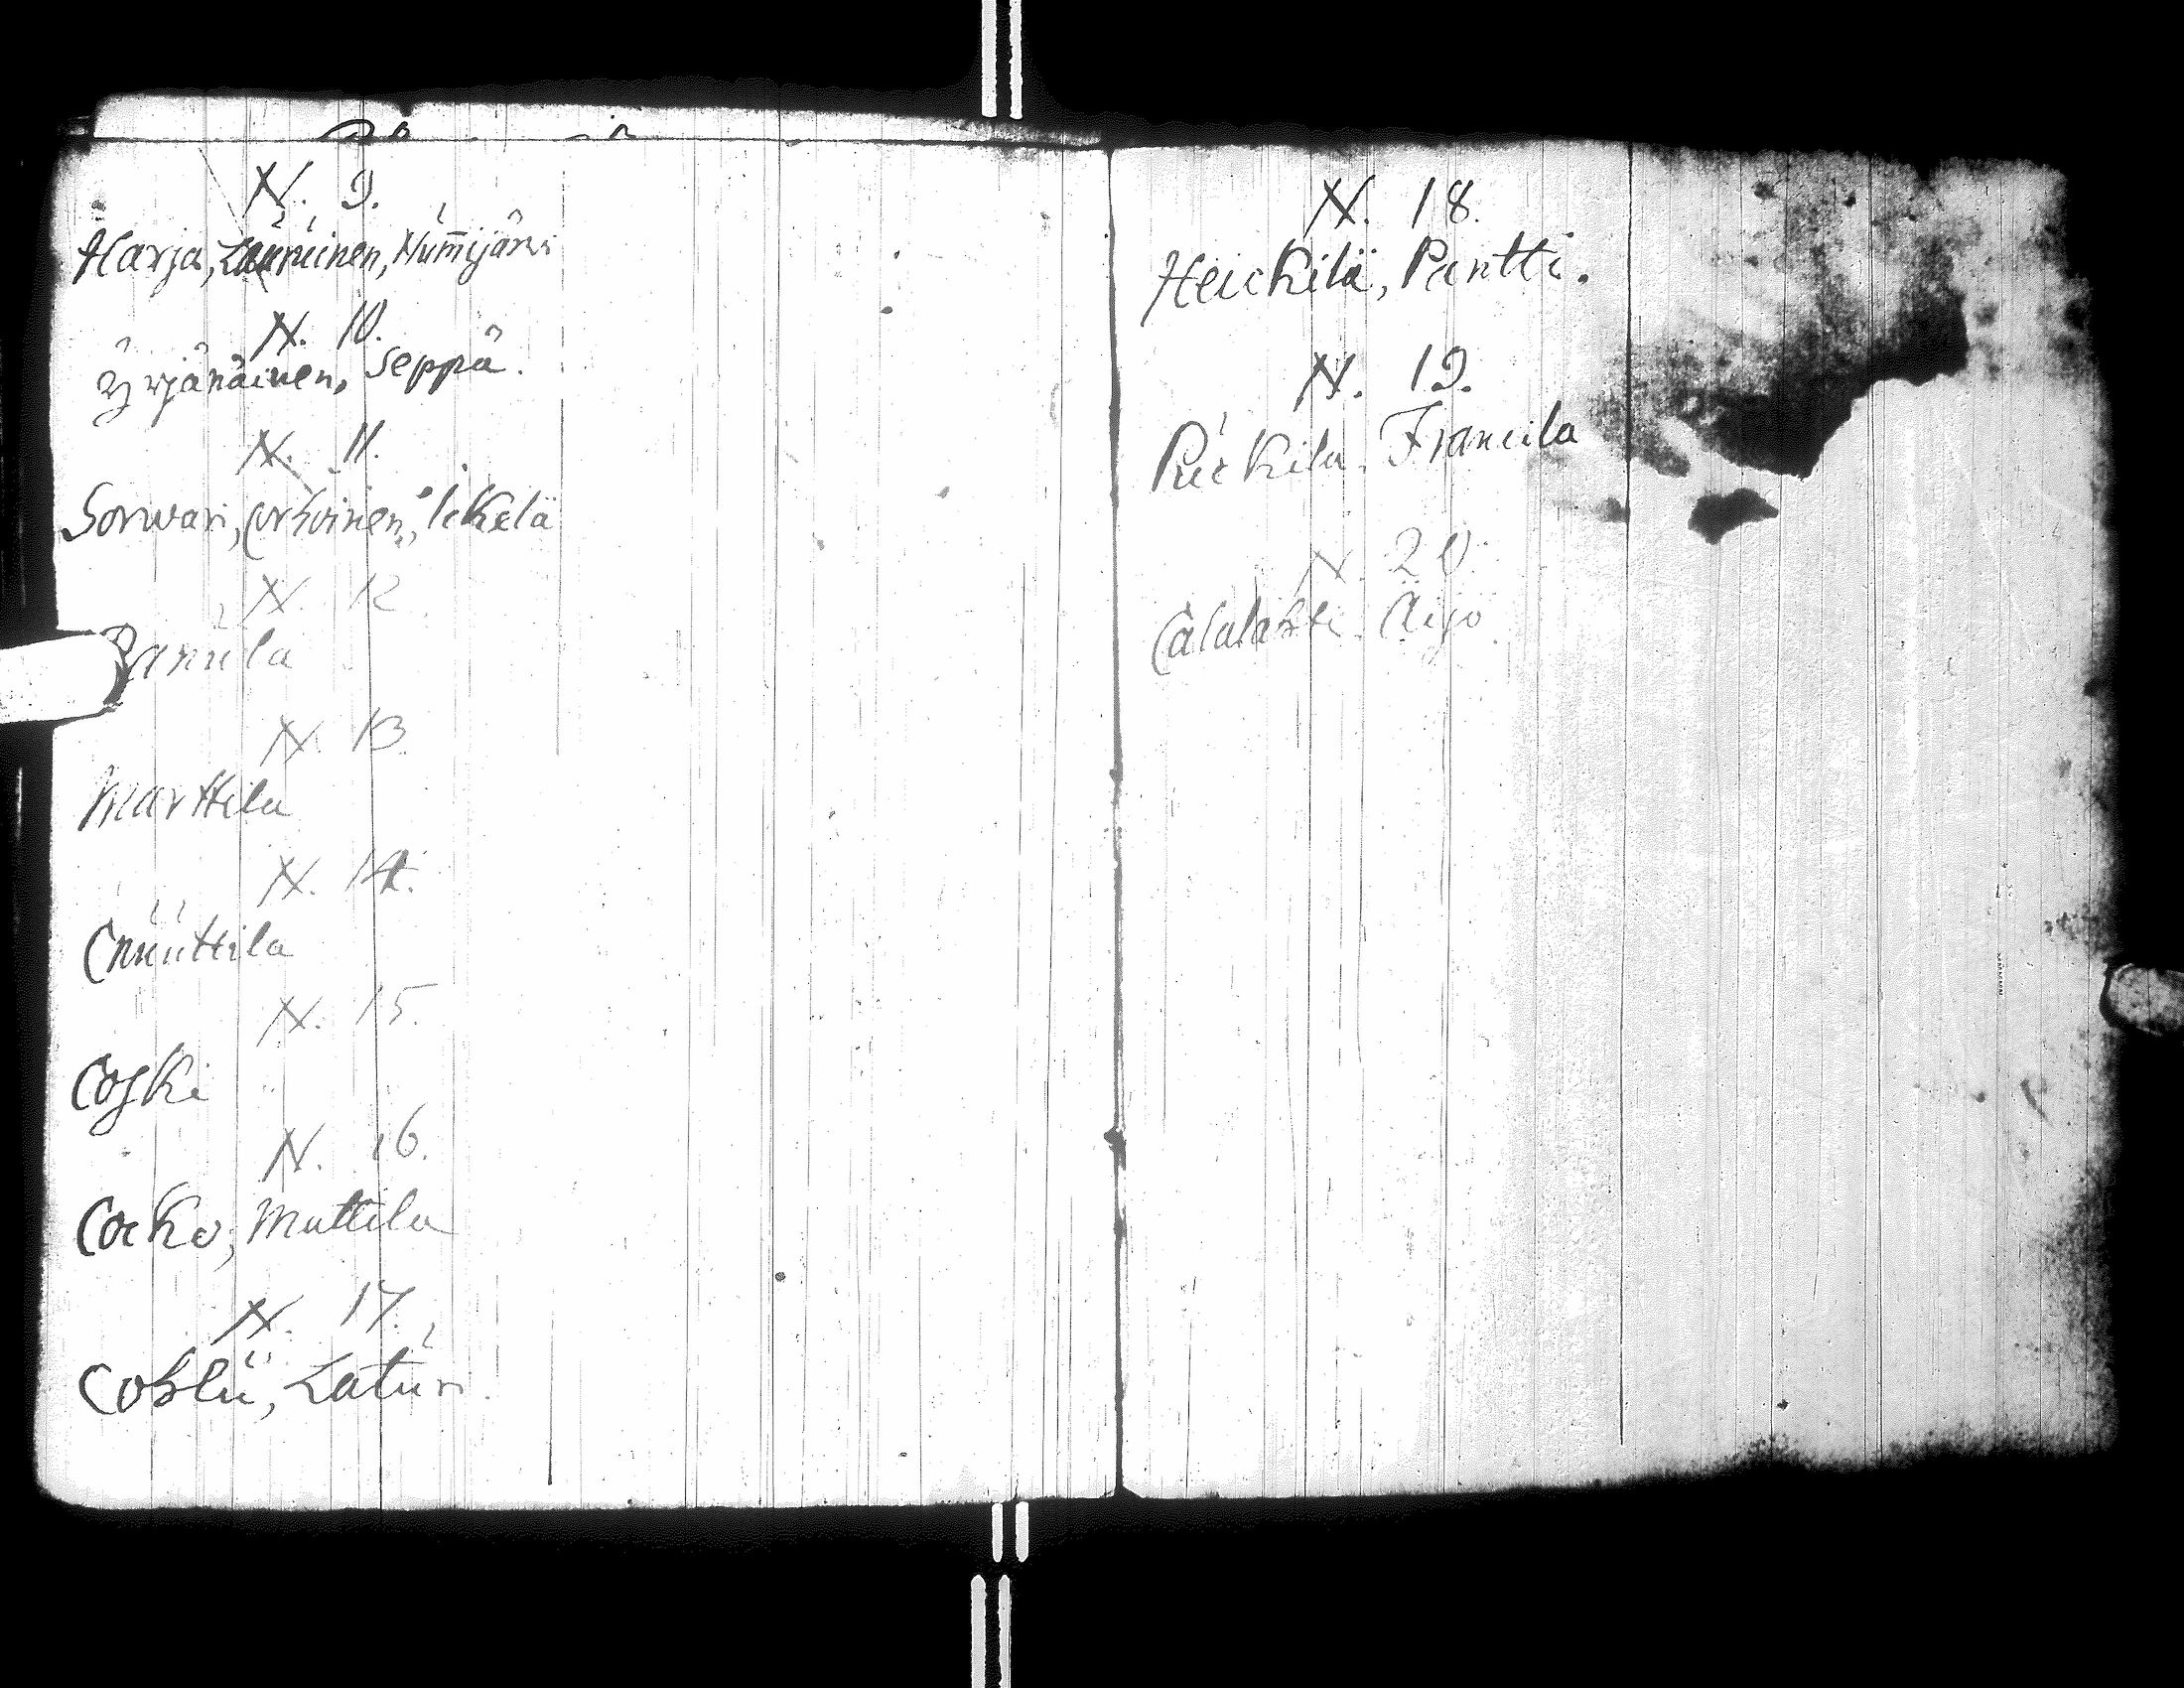 N. 9.
Harja, Nummijärvi
N. 10.
Yrjänäinen, Seppä.
N. 11.
Sorwari, Corhoinen, Ikelä
N. 12
Panula
N. 13
Marttila
N. 14.
Cnuuttila
N. 15.
Coski
N. 16.
Cocko, Mattila
N. 17.
Cohlu, Laturi.
N. 18.
Heickilä, Pantti.
N. 19.
Puckila. Francila
N. 20.
Calalahti. Äijö.